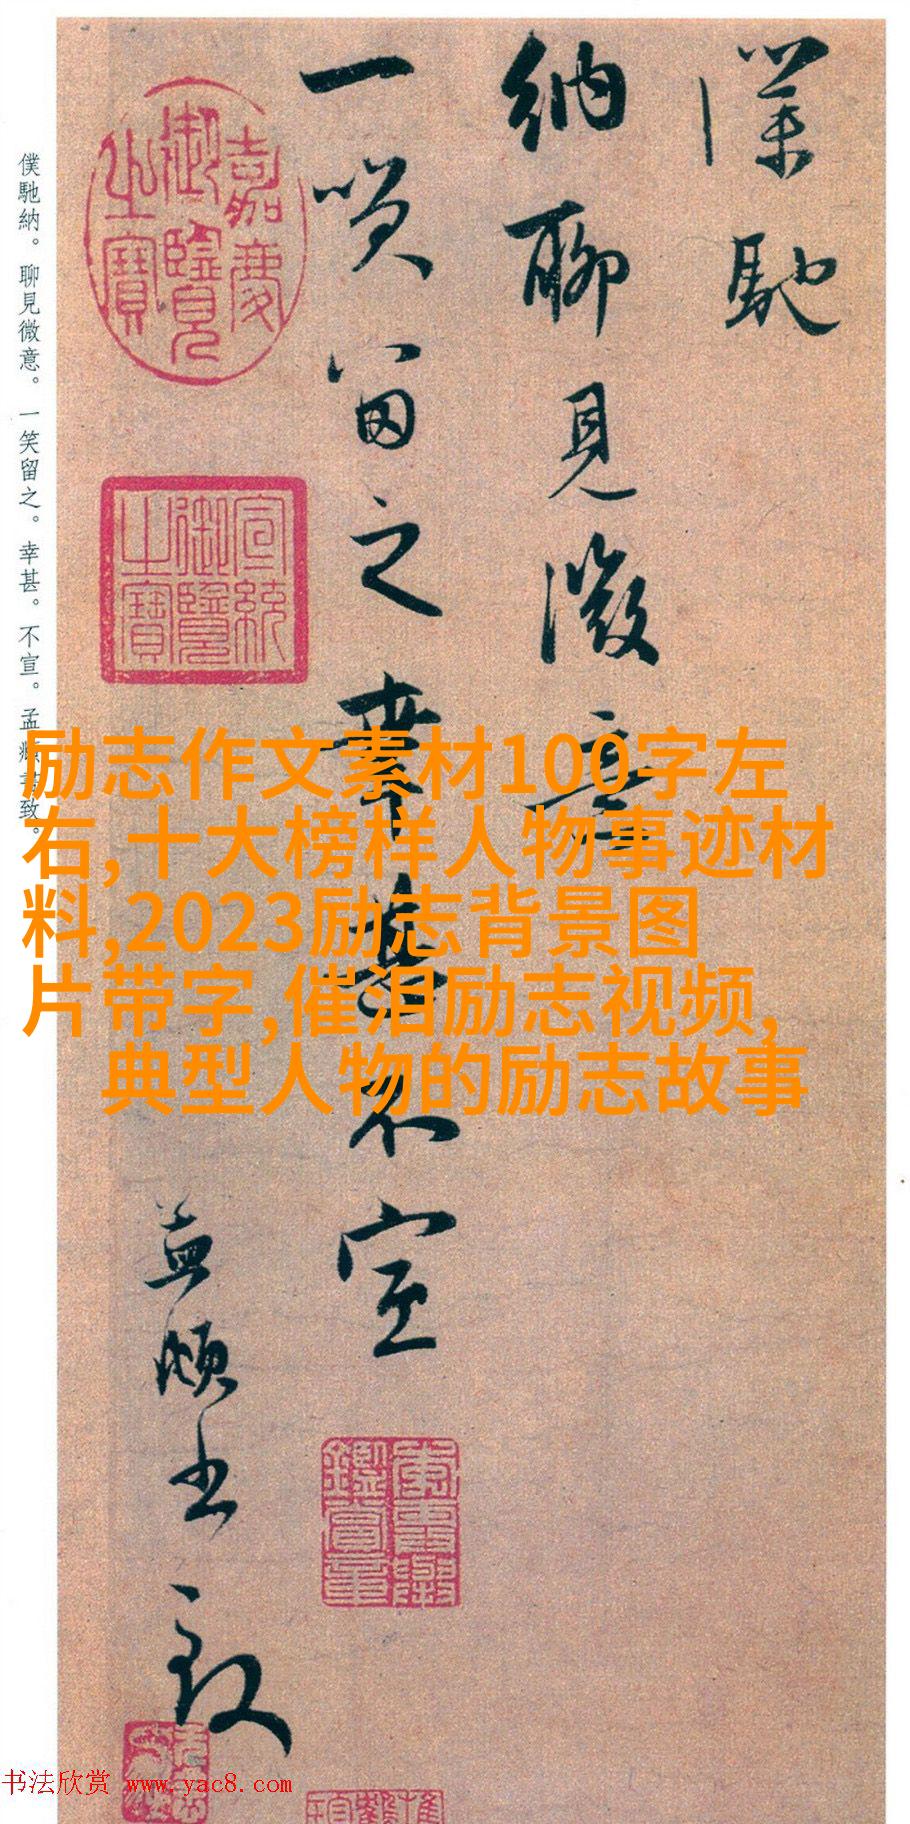 僕馳
納聊見微意
一笑留之幸甚不宣
孟頫書致
嘉慶
御覽
之寶
宣統
御覽
之寶
僕馳納。聊見微意。一笑留之。幸甚。不宣。孟頫書致。
励志作文素材100字左
右,十大榜样人物事迹材
料,2023励志背景图
片带字,催泪励志视频,
典型人物的励志故事
书法欣赏 www.yac8.com